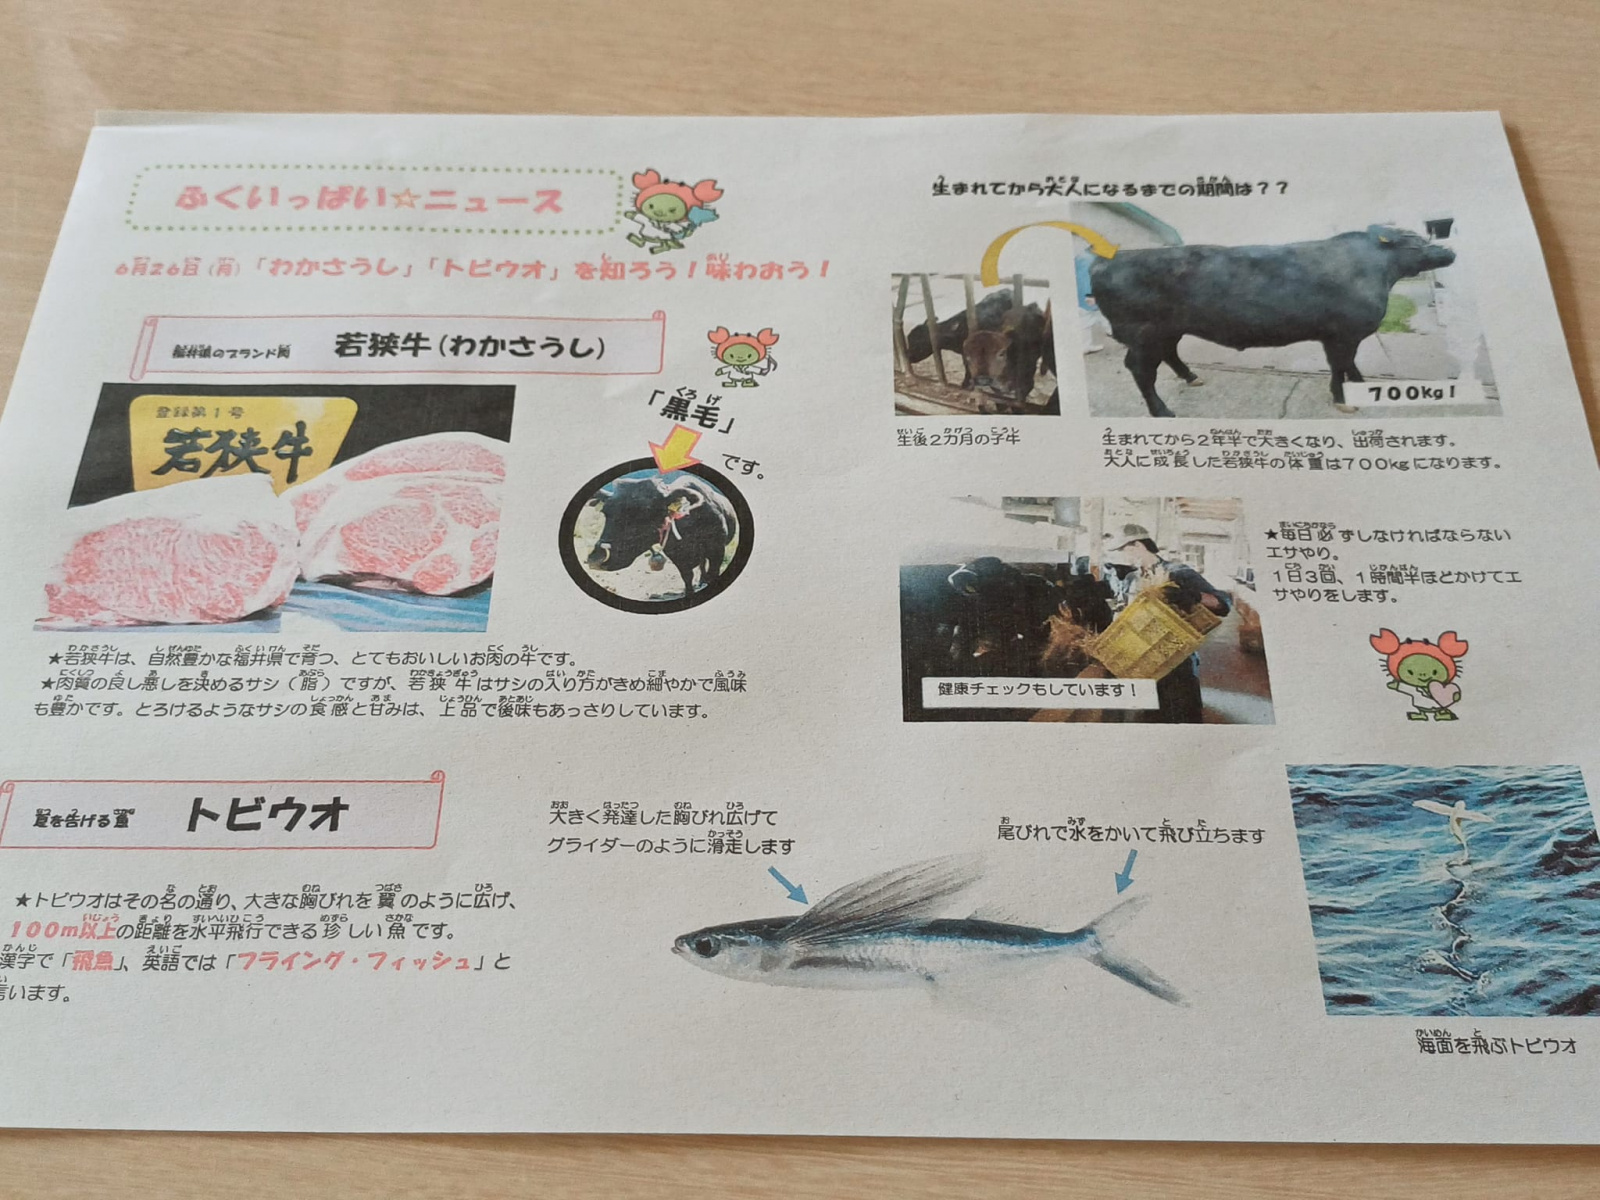 ふくいっぱい☆ニュース
6月26日(月)「わかさうし」「トビウオ」を知ろう！味わおう！
福井県のブランド肉 若狭牛(わかさうし)
登録第1号
若狭牛
「黒毛」
です。
★若狭牛は、自然豊かな福井県で育つ、とてもおいしいお肉の牛です。
★肉質の良し悪しを決めるサシ(脂)ですが、若狭牛はサシの入り方がきめ細やかで風味
も豊かです。とろけるようなサシの食感と甘みは、上品で後味もあっさりしています。
生まれてから大人になるまでの期間は？？
700kg！
生後2カ月の子牛
生まれてから2年半で大きくなり、出荷されます。
大人に成長した若狭牛の体重は700kgになります。
★毎日必ずしなければならない
エサやり。
1日3回、1時間半ほどかけてエ
サやりをします。
健康チェックもしています！
夏を告げる魚 トビウオ
★トビウオはその名の通り、大きな胸びれを翼のように広げ、
100m以上の距離を水平飛行できる珍しい魚です。
漢字で「飛魚」、英語では「フライング・フィッシュ」と
言います。
大きく発達した胸びれ広げて
グライダーのように滑走します
尾びれで水をかいて飛び立ちます
海面を飛ぶトビウオ